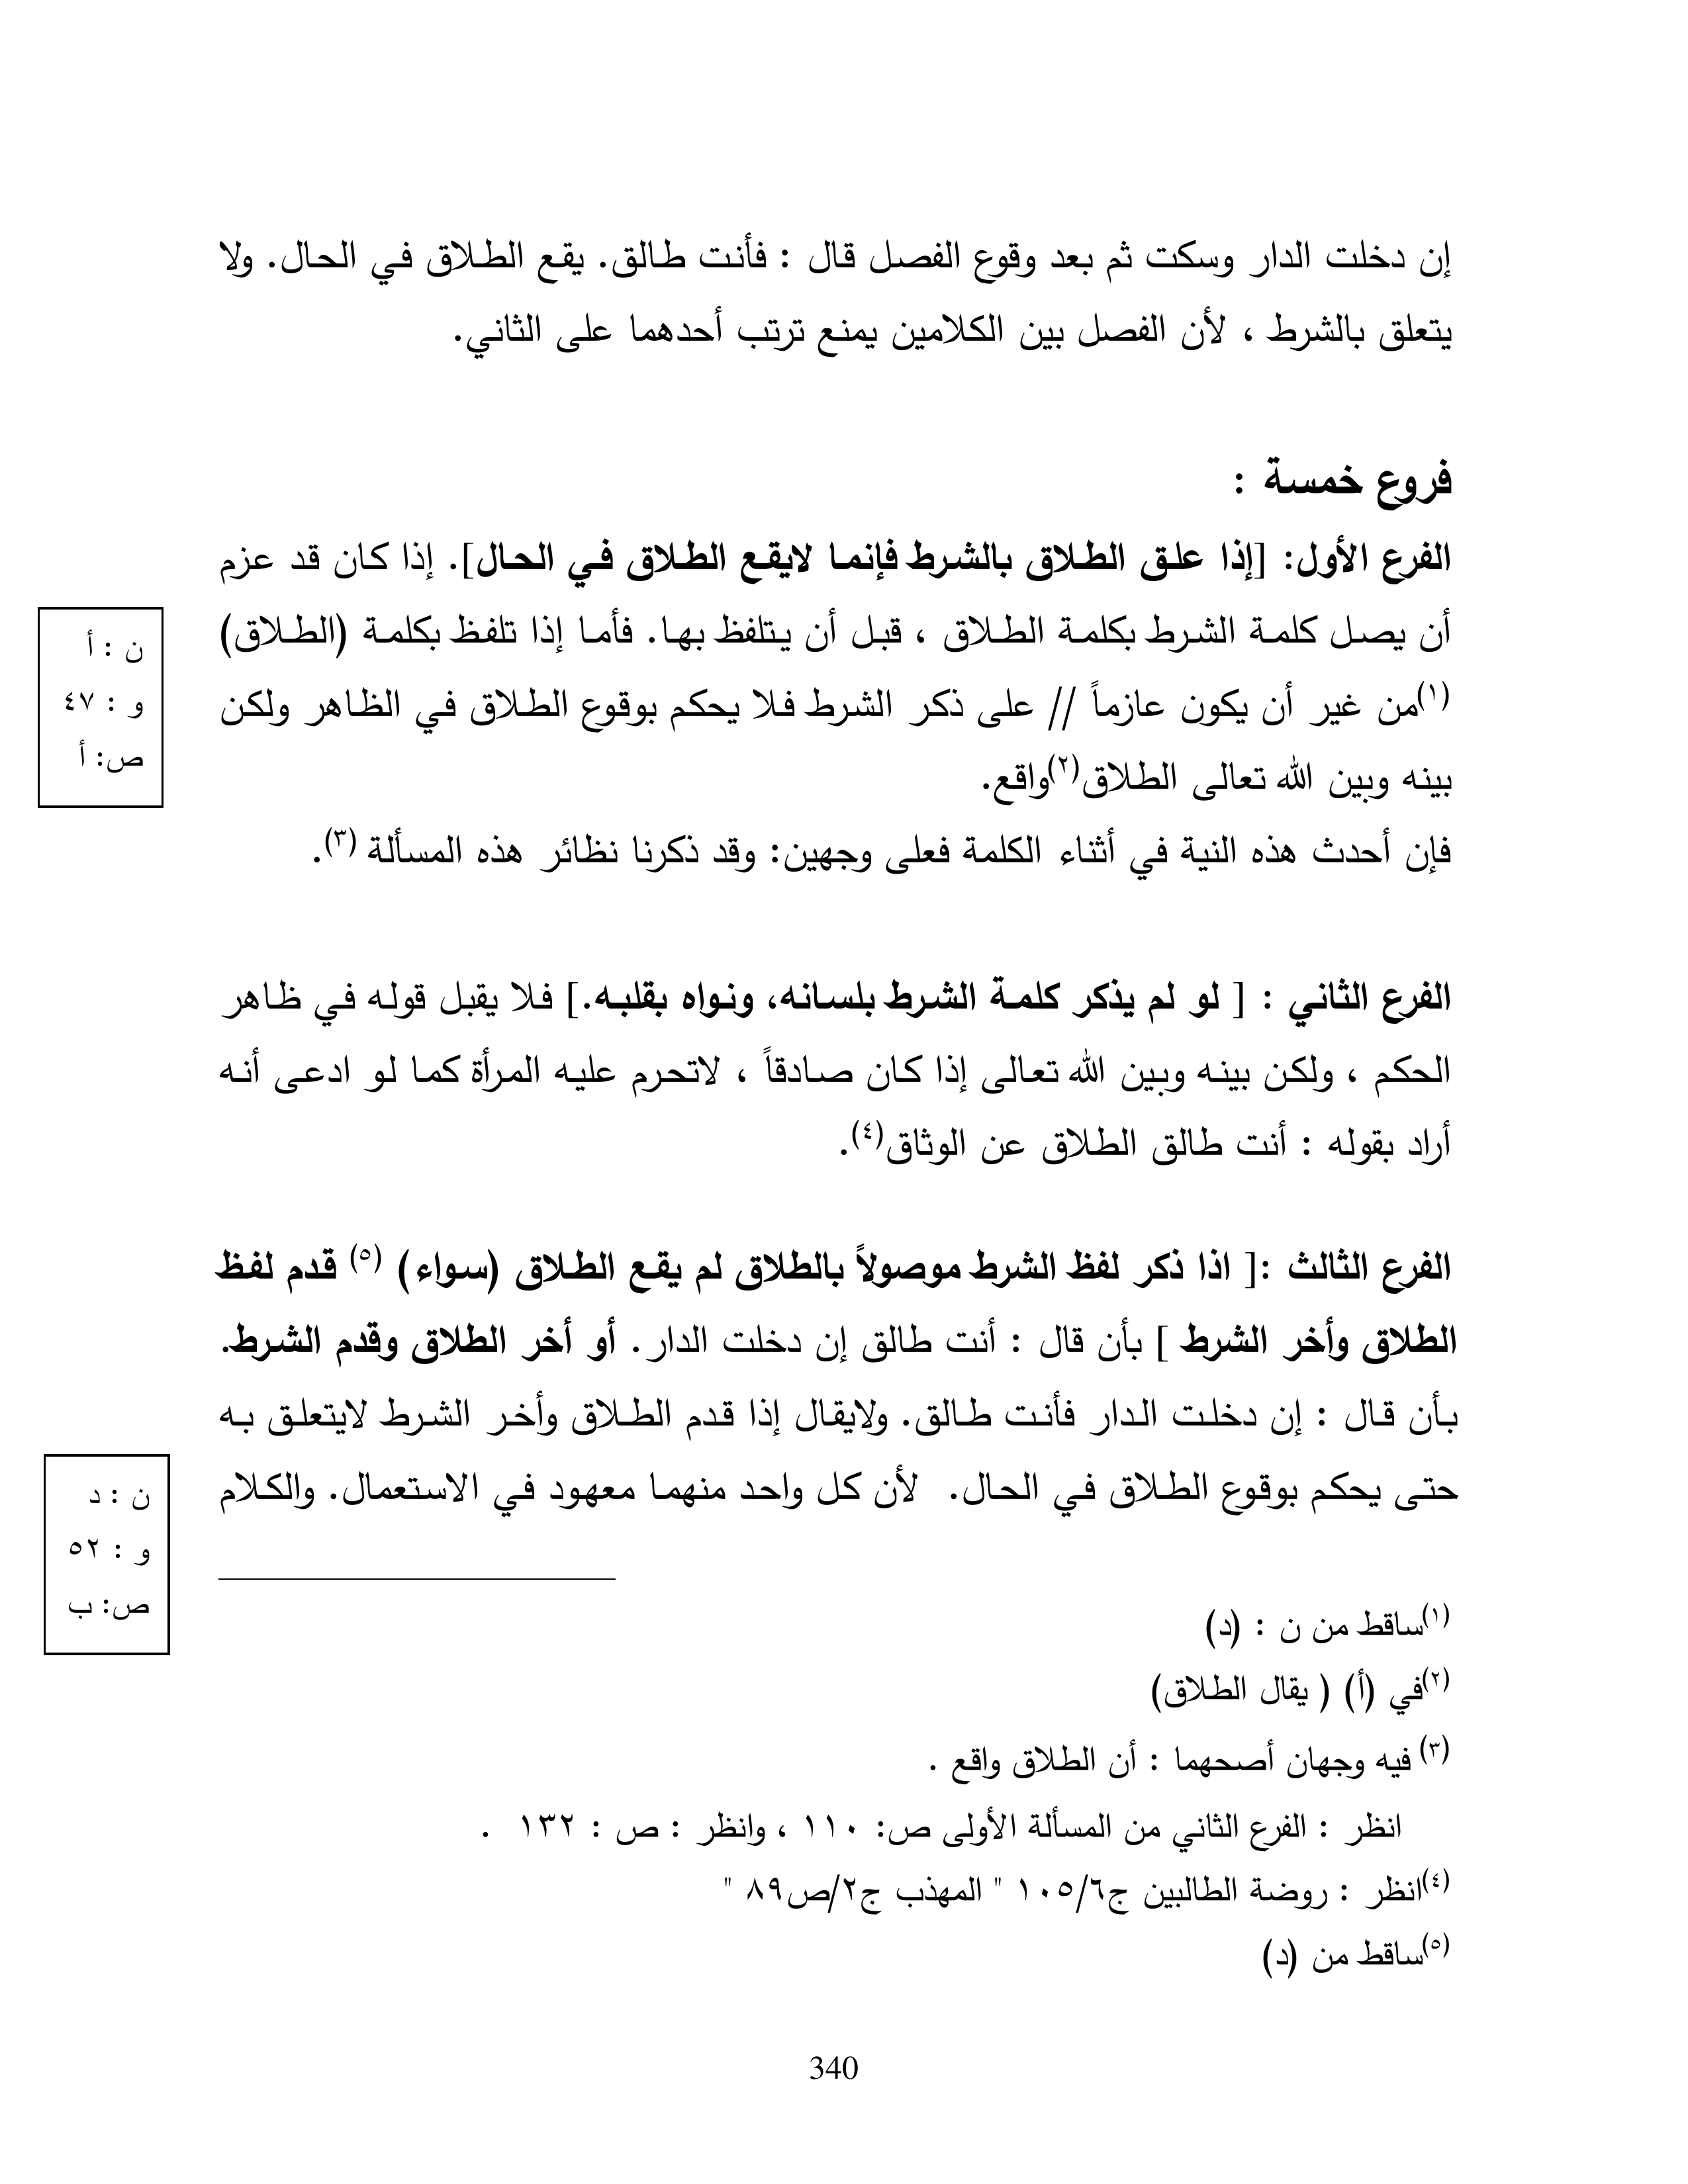 إن دخلت الدار وسكت ثم بعد وقوع الفصل قال : فأنت طالق. يقع الطلاق في الحال. ولا
يتعلق بالشرط ، لأن الفصل بين الكلامين يمنع ترتب أحدهما على الثاني.
فروع خمسة :
الفرع الأول: [إذا علق الطلاق بالشرط فإنما لايقع الطلاق في الحال]. إذا كان قد عزم
أن يصل كلمة الشرط بكلمة الطلاق ، قبل أن يتلفظ بها. فأما إذا تلفظ بكلمة (الطلاق)
(١)من غير أن يكون عازماً // على ذكر الشرط فلا يحكم بوقوع الطلاق في الظاهر ولكن
بينه وبين الله تعالى الطلاق(٢)واقع.
فإن أحدث هذه النية في أثناء الكلمة فعلى وجهين: وقد ذكرنا نظائر هذه المسألة (٣).
ن : أ
و : ٤٧
ص: أ
الفرع الثاني : [ لو لم يذكر كلمة الشرط بلسانه، ونواه بقلبه.] فلا يقبل قوله في ظاهر
الحكم ، ولكن بينه وبين الله تعالى إذا كان صادقاً ، لاتحرم عليه المرأة كما لو ادعى أنه
أراد بقوله : أنت طالق الطلاق عن الوثاق(٤).
الفرع الثالث :[ اذا ذكر لفظ الشرط موصولاً بالطلاق لم يقع الطلاق (سواء) (٥) قدم لفظ
الطلاق وأخر الشرط ] بأن قال : أنت طالق إن دخلت الدار. أو أخر الطلاق وقدم الشرط.
بأن قال : إن دخلت الدار فأنت طالق. ولايقال إذا قدم الطلاق وأخر الشرط لايتعلق به
حتى يحكم بوقوع الطلاق في الحال. لأن كل واحد منهما معهود في الاستعمال. والكلام
ن : د
و : ٥٢
ص: ب
(١)ساقط من ن : (د)
(٢)في (أ) ( يقال الطلاق)
(٣) فيه وجهان أصحهما : أن الطلاق واقع .
انظر : الفرع الثاني من المسألة الأولى ص: ١١٠ ، وانظر : ص : ١٣٢ .
(٤)انظر : روضة الطالبين ج٦/١٠٥ " المهذب ج٢/ص٨٩ "
(٥)ساقط من (د)
340